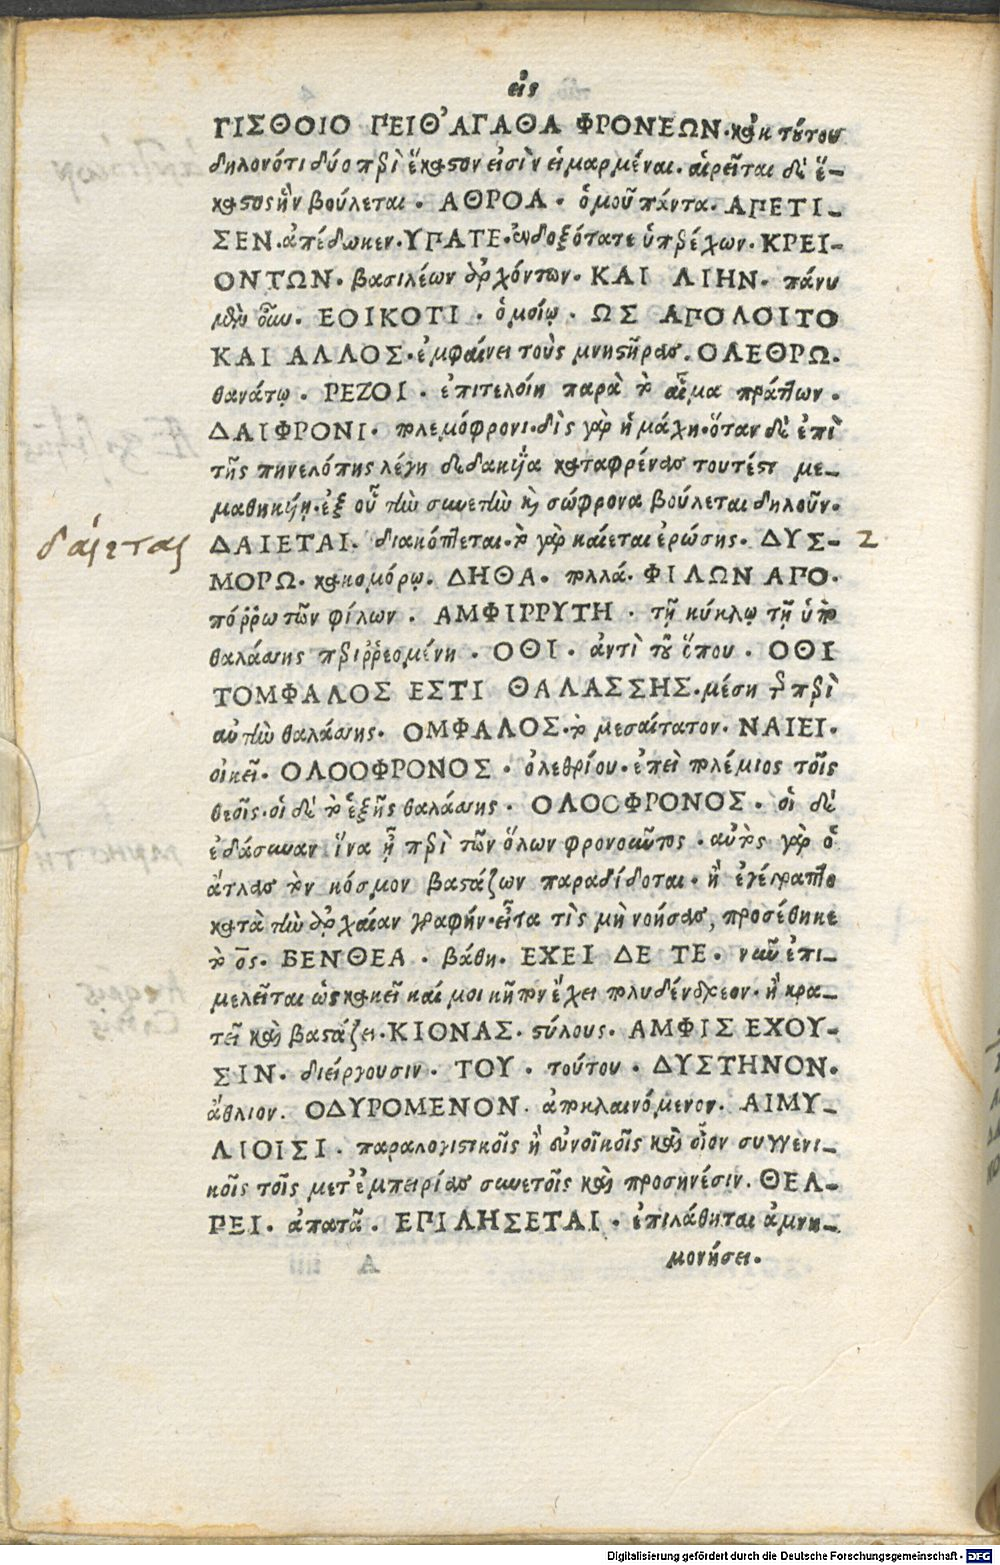 εἰς
ΓΙΣΘΟΙΟ ΠΕΙΘ' ΑΓΑΘΑ ΦΡΟΝΕΩΝ. κἀκ τούτου
δηλονότι δύο περὶ ἕκαστον εἰσὶν εἱμαρμέναι. αἱρεῖται δὲ ἕ-
καστος ἣν βούλεται. ΑΘΡΟΑ. ὁμοῦ πάντα. ΑΠΕΤΙ-
ΣΕΝ. ἀπέδωκεν. ΥΠΑΤΕ. ἐνδοξότατε ὑπερέχων. ΚΡΕΙ-
ΟΝΤΩΝ. βασιλέων ἀρχόντων. ΚΑΙ ΛΙΗΝ. πάνυ
μὲν οὖν. ΕΟΙΚΟΤΙ. ὁμοίῳ. ΩΣ ΑΠΟΛΟΙΤΟ
ΚΑΙ ΑΛΛΟΣ. ἐμφαίνει τοὺς μνηστῆρας. ΟΛΕΘΡΩ.
θανάτῳ. ΡΕΖΟΙ. ἐπιτελοίη παρὰ τὸ αἷμα πράττων.
ΔΑΙΦΡΟΝΙ. πολεμόφρονι. δὶς γὰρ ἡ μάχη. ὅταν δὲ ἐπὶ
τῆς πηνελόπης λέγη δεδαηκῦα κατα φρένας τουτέστι με-
μαθηκύη. ἐξ οὗ τὴν συνετὴν καὶ σώφρονα βούλεται δηλοῦν.
δάιεται ΔΑΙΕΤΑΙ. διακόπτεται. τὸ γὰρ καίεται ἐρώσης. ΔΥΣ- 2
ΜΟΡΩ. κακομόρῳ. ΔΗΘΑ. πολλά. ΦΙΛΩΝ ΑΠΟ.
πόῤῥω τῶν φίλων. ΑΜΦΙΡΡΥΤΗ. τῇ κύκλῳ τῇ ὑπὸ
θαλάσσης περιῤῥεομένη. ΟΘΙ. ἀντὶ τοῦ ὅπου. ΟΘΙ
ΤΟΜΦΑΛΟΣ ΕΣΤΙ ΘΑΛΑΣΣΗΣ. μέση τῆς περὶ
αὐτὴν θαλάσσης. ΟΜΦΑΛΟΣ. τὸ μεσαίτατον. ΝΑΙΕΙ.
οἰκεῖ. ΟΛΟΟΦΡΟΝΟΣ. ὀλεθρίου. ἐπεὶ πολέμιος τοῖς
θεοῖς. οἱ δὲ τὸ ἑξῆς θαλάσσης. ΟΛΟΟΦΡΟΝΟΣ. οἱ δὲ
ἐδάσυναν ἵνα ᾖ περὶ τῶν ὅλων φρονοῦντος. αὐτὸς γὰρ ὁ
ἄτλας τὸν κόσμον βαστάζων παραδίδοται. ἢ ἐγέγραπτο
κατὰ τὴν ἀρχαίαν γραφήν. εἶτα τὶς μὴ νοήσας, προσέθηκε
τὸ ος. ΒΕΝΘΕΑ. βάθη. ΕΧΕΙ ΔΕ ΤΕ. νῦν ἐπι-
μελεῖται ὡς κακεῖ καί μοι κῆπον ἔχει πολυδένδρεον. ἢ κρα-
τεῖ καὶ βαστάζει. ΚΙΟΝΑΣ. στύλους. ΑΜΦΙΣ ΕΧΟΥ-
ΣΙΝ. διείργουσιν. ΤΟΥ. τούτου. ΔΥΣΤΗΝΟΝ.
ἄθλιον. ΟΔΥΡΟΜΕΝΟΝ. ἀποκλαινόμενον. ΑΙΜΥ-
ΛΙΟΙΣΙ. παραλογιστικοῖς ἢ εὐνοϊκοῖς καὶ οἷον συγγενι-
κοῖς τοῖς μετ' ἐμπειρίας συνετοῖς καὶ προσηνέσιν. ΘΕΛ-
ΓΕΙ. ἀπατᾶ. ΕΠΙΛΗΣΕΤΑΙ. ἐπιλάθηται ἀμνη-
μονήσει.
Digitalisierung gefördert durch die Deutsche Forschungsgemeinschaft - DFG